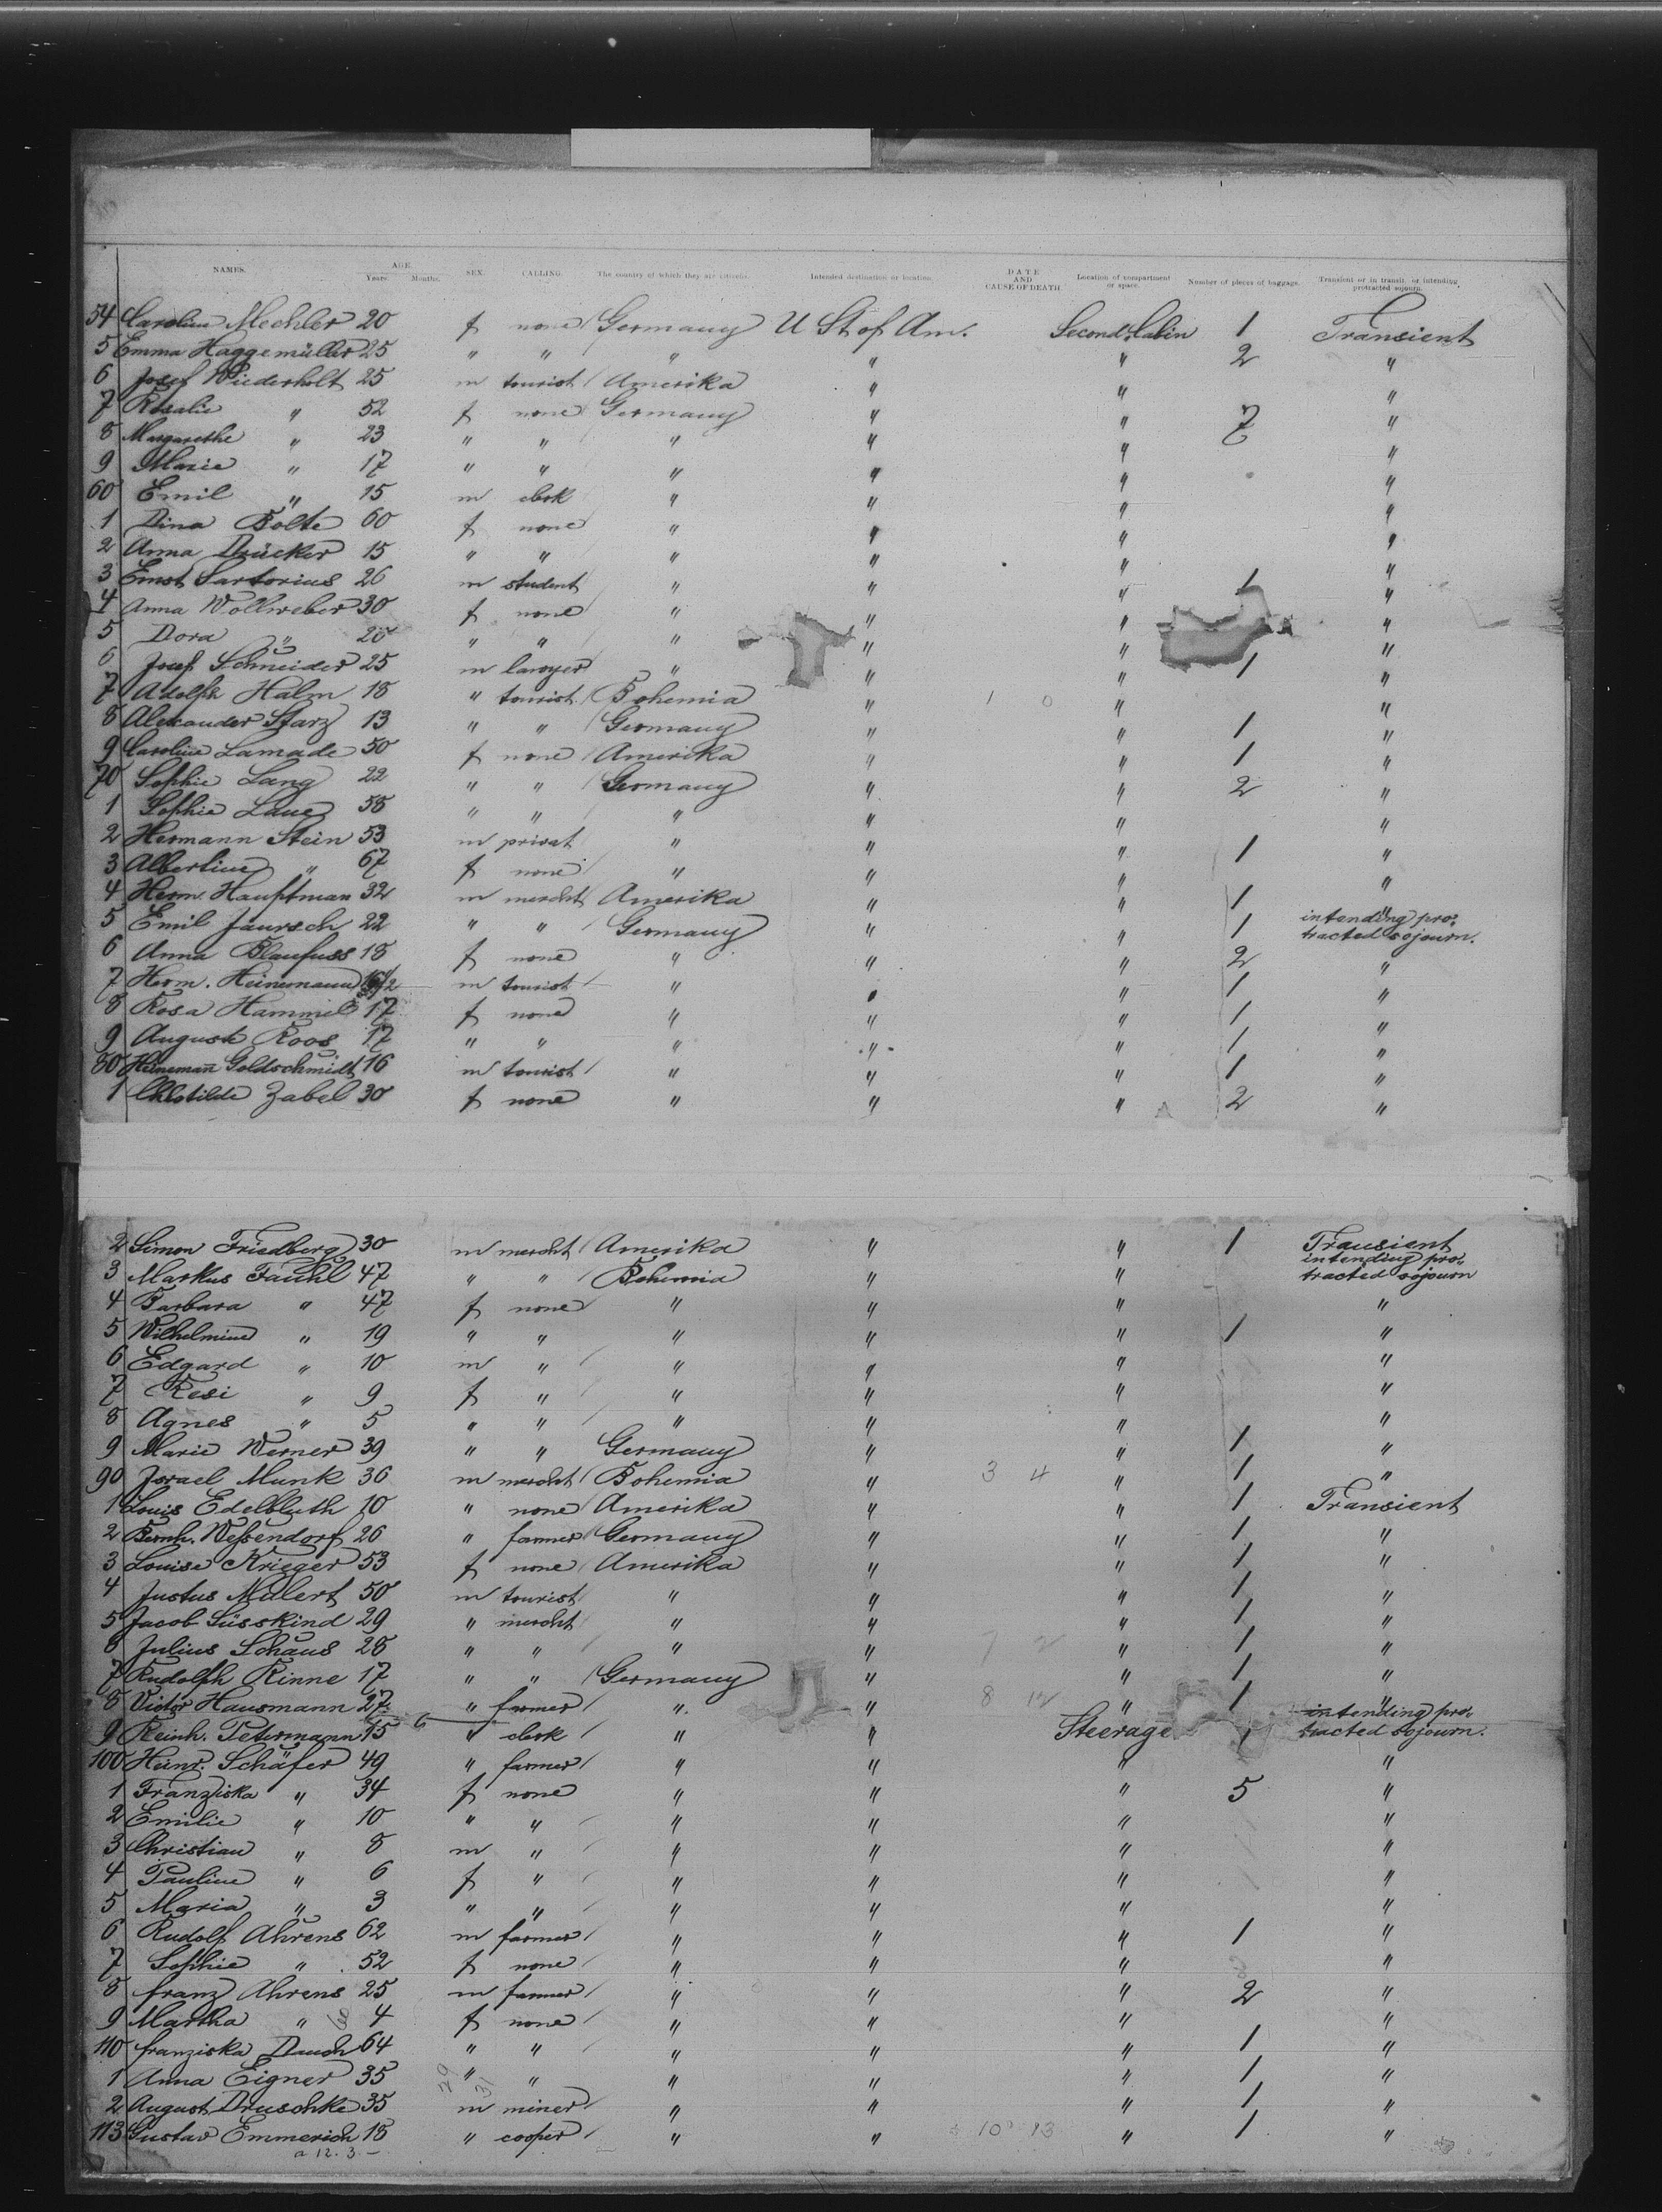 NAMES. AGE. Years. Months. SEX. CALLING. The country of which they are citizens. Intended destination or location. DATE AND CAUSE OF DEATH. Location of compartment or space. Number of pieces of baggage. Transient or in transit, or intending protracted sojourn.
54 Caroline Mechler 20 f none Germany U St of Am. Second Cabin 1 Transient
5 Emma Haggemüller 25 " " " " " 2 "
6 Josef Wiederholt 25 m tourist Amerika " " "
7 Rosalie " 52 f none Germany " " 7 "
8 Margarethe " 23 " " " " " "
9 Marie " 17 " " " " " "
60 Emil " 15 m clerk " " " "
1 Dina Bolte 60 f none " " " "
2 Anna Drücker 15 " " " " " "
3 Ernst Sartorius 26 m student " " " 1 "
4 Anna Wollweber 30 f none " " " "
5 Dora " 20 " " " " " "
6 Josef Schneider 25 m lawyer " " " 1 "
7 Adolph Halm 18 " tourist Bohemia " 1 0 " "
8 Alexander Starz 13 " " Germany " " 1 "
9 Caroline Lamade 50 f none Amerika " " 1 "
70 Sophie Lang 22 " " Germany " " 2 "
1 Sophie 58 " " " " " "
2 Hermann Stein 53 m privat " " " 1 "
3 Albertine " 67 f none " " " "
4 Herm. Hauptman 32 m mercht Amerika " " 1 "
5 Emil Jaursch 22 " " Germany " " 1 intending pro-
tracted sojourn.
6 Anna Blaufuss 18 f none " " " 2 "
7 Herm. Heinemann m tourist " " " 1 "
8 Rosa Hammel 17 f none " " " 1 "
9 August Roos 17 " " " " " 1 "
80 Heineman Goldschmidt 16 m tourist " " " 1 "
1 Chlotilde Zabel 30 f none " " " 2 "
2 Simon Friedberg 30 m mercht Amerika " " 1 Transient
3 Markus Fauhl 47 " " Bohemia " " intending pro-
tracted sojourn
4 Barbara " 47 f none " " " "
5 Wilhelmine " 19 " " " " " 1 "
6 Edgard " 10 m " " " " "
7 Resi " 9 f " " " " "
8 Agnes " 5 " " " " " "
9 Marie Werner 39 " " Germany " " 1 "
90 Israel Munk 36 m mercht Bohemia " 3 4 " 1 "
1 Louis Edelbluth 10 " none Amerika " " 1 Transient
2 Bernh. Weßendorf 26 " farmer Germany " " 1 "
3 Louise Krieger 53 f none Amerika " " 1 "
4 Justus Mulert 50 m tourist " " " 1 "
5 Jacob Süsskind 29 " mercht " " " 1 "
6 Julius Schaus 28 " " " " 7 2 " 1 "
7 Rudolph Rinne 17 " " Germany " " 1 "
8 Victor Hausmann 27 " farmer " " 8 12 " 1 "
9 Reinh. Petermann 15 6 " clerk " " Steerage 1 intending pro-
tracted sojourn.
100 Heinr. Schäfer 49 " farmer " " " "
1 Franziska " 34 f none " " " 5 "
2 Emilie " 10 " " " " " "
3 Christian " 8 m " " " " "
4 Pauline " 6 f " " " " "
5 Maria " 3 " " " " " "
6 Rudolf Ahrens 62 m farmer " " " 1 "
7 Sophie " 52 f none " " " "
8 franz Ahrens 25 m farmer " " " 2 "
9 Martha " 4 f none " " " "
110 franziska Dauch 64 " " " " " 1 "
1 Anna Eigner 35 " " " " " 1 "
2 August Druschke 35 m miner " " " 1 "
113 Gustav Emmerich 18 " cooper " " 10 13 " 1 "
a 12. 3 –